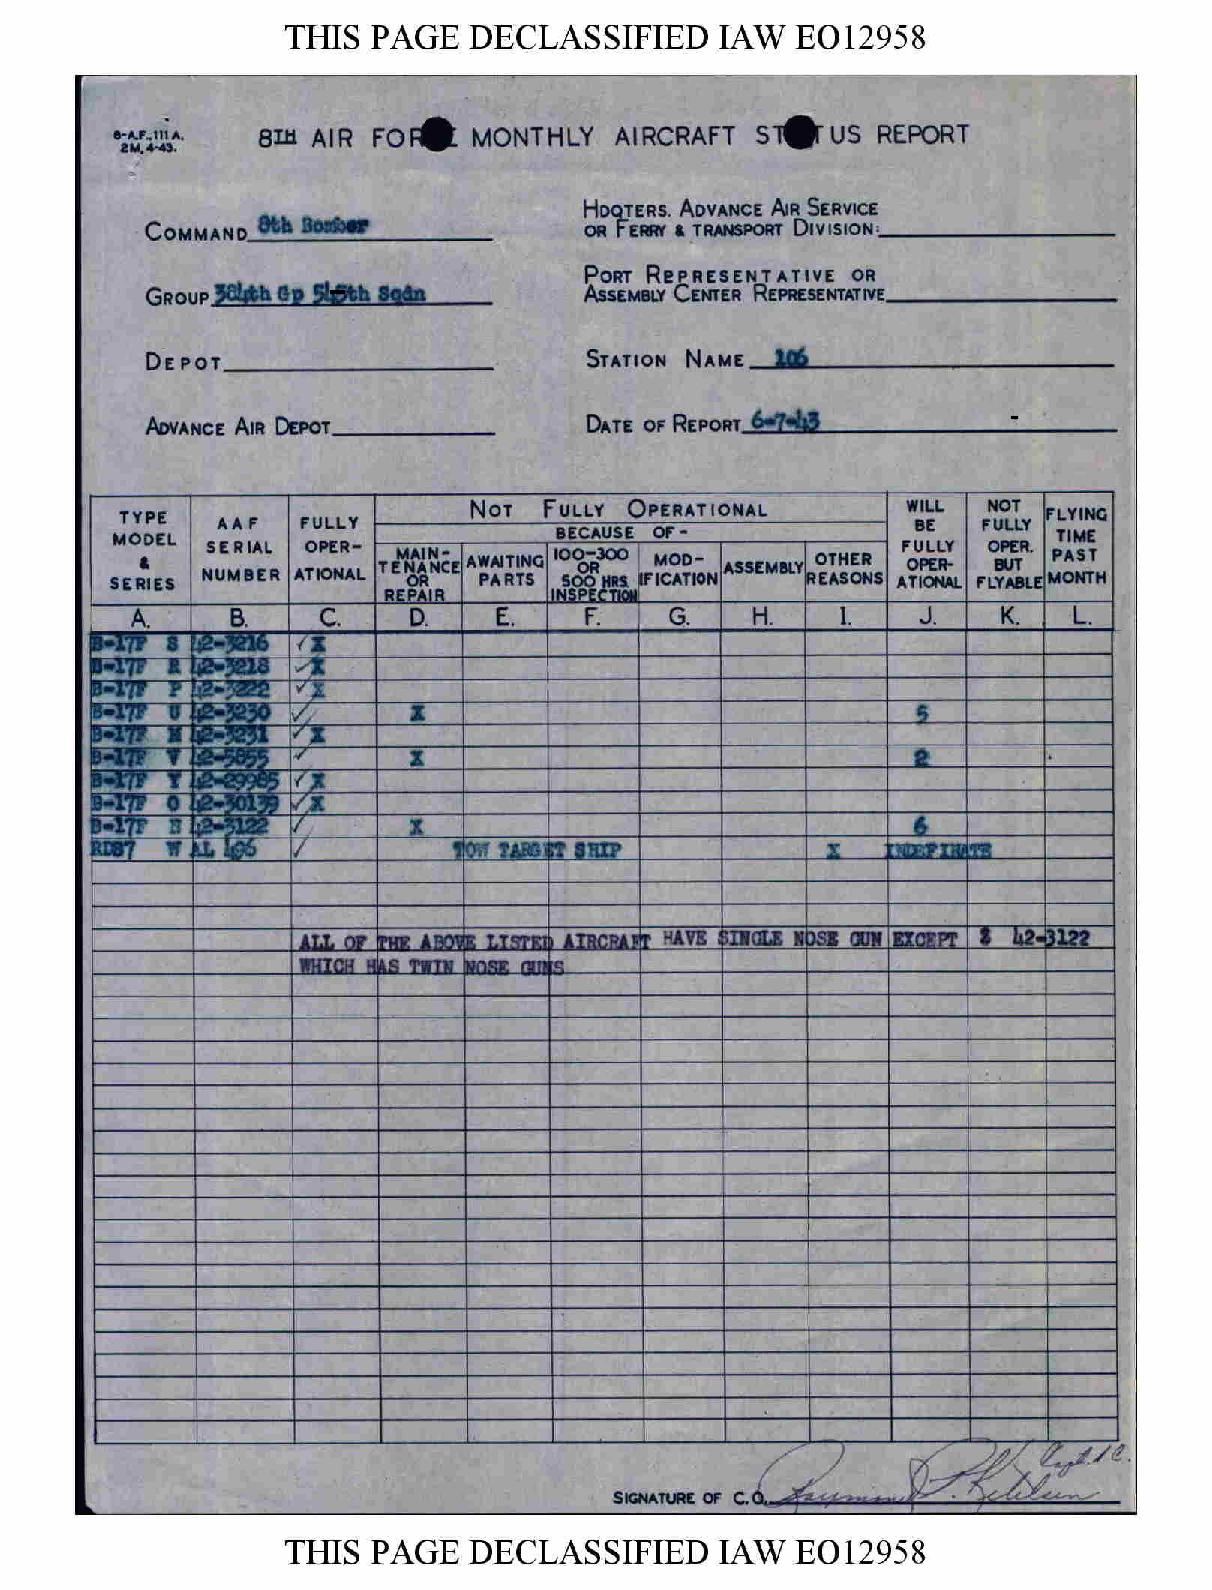 THIS PAGE DECLASSIFIED IAW EO12958
8-A.F.,111 A.
2M. 4-43.
8TH AIR FOR MONTHLY AIRCRAFT ST TUS REPORT
COMMAND 8th Bomber
HDQTERS. ADVANCE AIR SERVICE
OR FERRY & TRANSPORT DIVISION:
GROUP 384th Gp 545th Sqdn
PORT REPRESENTATIVE OR
ASSEMBLY CENTER REPRESENTATIVE
DEPOT
STATION NAME 106
ADVANCE AIR DEPOT
DATE OF REPORT 6-7-43
TYPE MODEL & SERIES
AAF SERIAL NUMBER
FULLY OPER-ATIONAL
NOT FULLY OPERATIONAL
BECAUSE OF -
MAIN-TENANCE OR REPAIR
AWAITING PARTS
100-300 OR 500 HRS. INSPECTION
MOD-IFICATION
ASSEMBLY
OTHER REASONS
WILL BE FULLY OPER-ATIONAL
NOT FULLY OPER. BUT FLYABLE
FLYING TIME PAST MONTH
A. B. C. D. E. F. G. H. I. J. K. L.
B-17F S 42-3216 ✓ X
B-17F R 42-3218 ✓ X
B-17F P 42-3222 ✓ X
B-17F U 42-3230 ✓ X 5
B-17F 42-3231 ✓ X
B-17F V 42-5855 ✓ X 2
B-17F Y 42-29985 ✓ X
B-17F O 42-30139 ✓ X
B-17F 42-3122 ✓ X 6
W AL 496 ✓ TOW TARGET SHIP X INDEFINATE
ALL OF THE ABOVE LISTED AIRCRAFT HAVE SINGLE NOSE GUN EXCEPT 42-3122
WHICH HAS TWIN NOSE GUNS
SIGNATURE OF C.O. Raymond P. Ketelsen
THIS PAGE DECLASSIFIED IAW EO12958